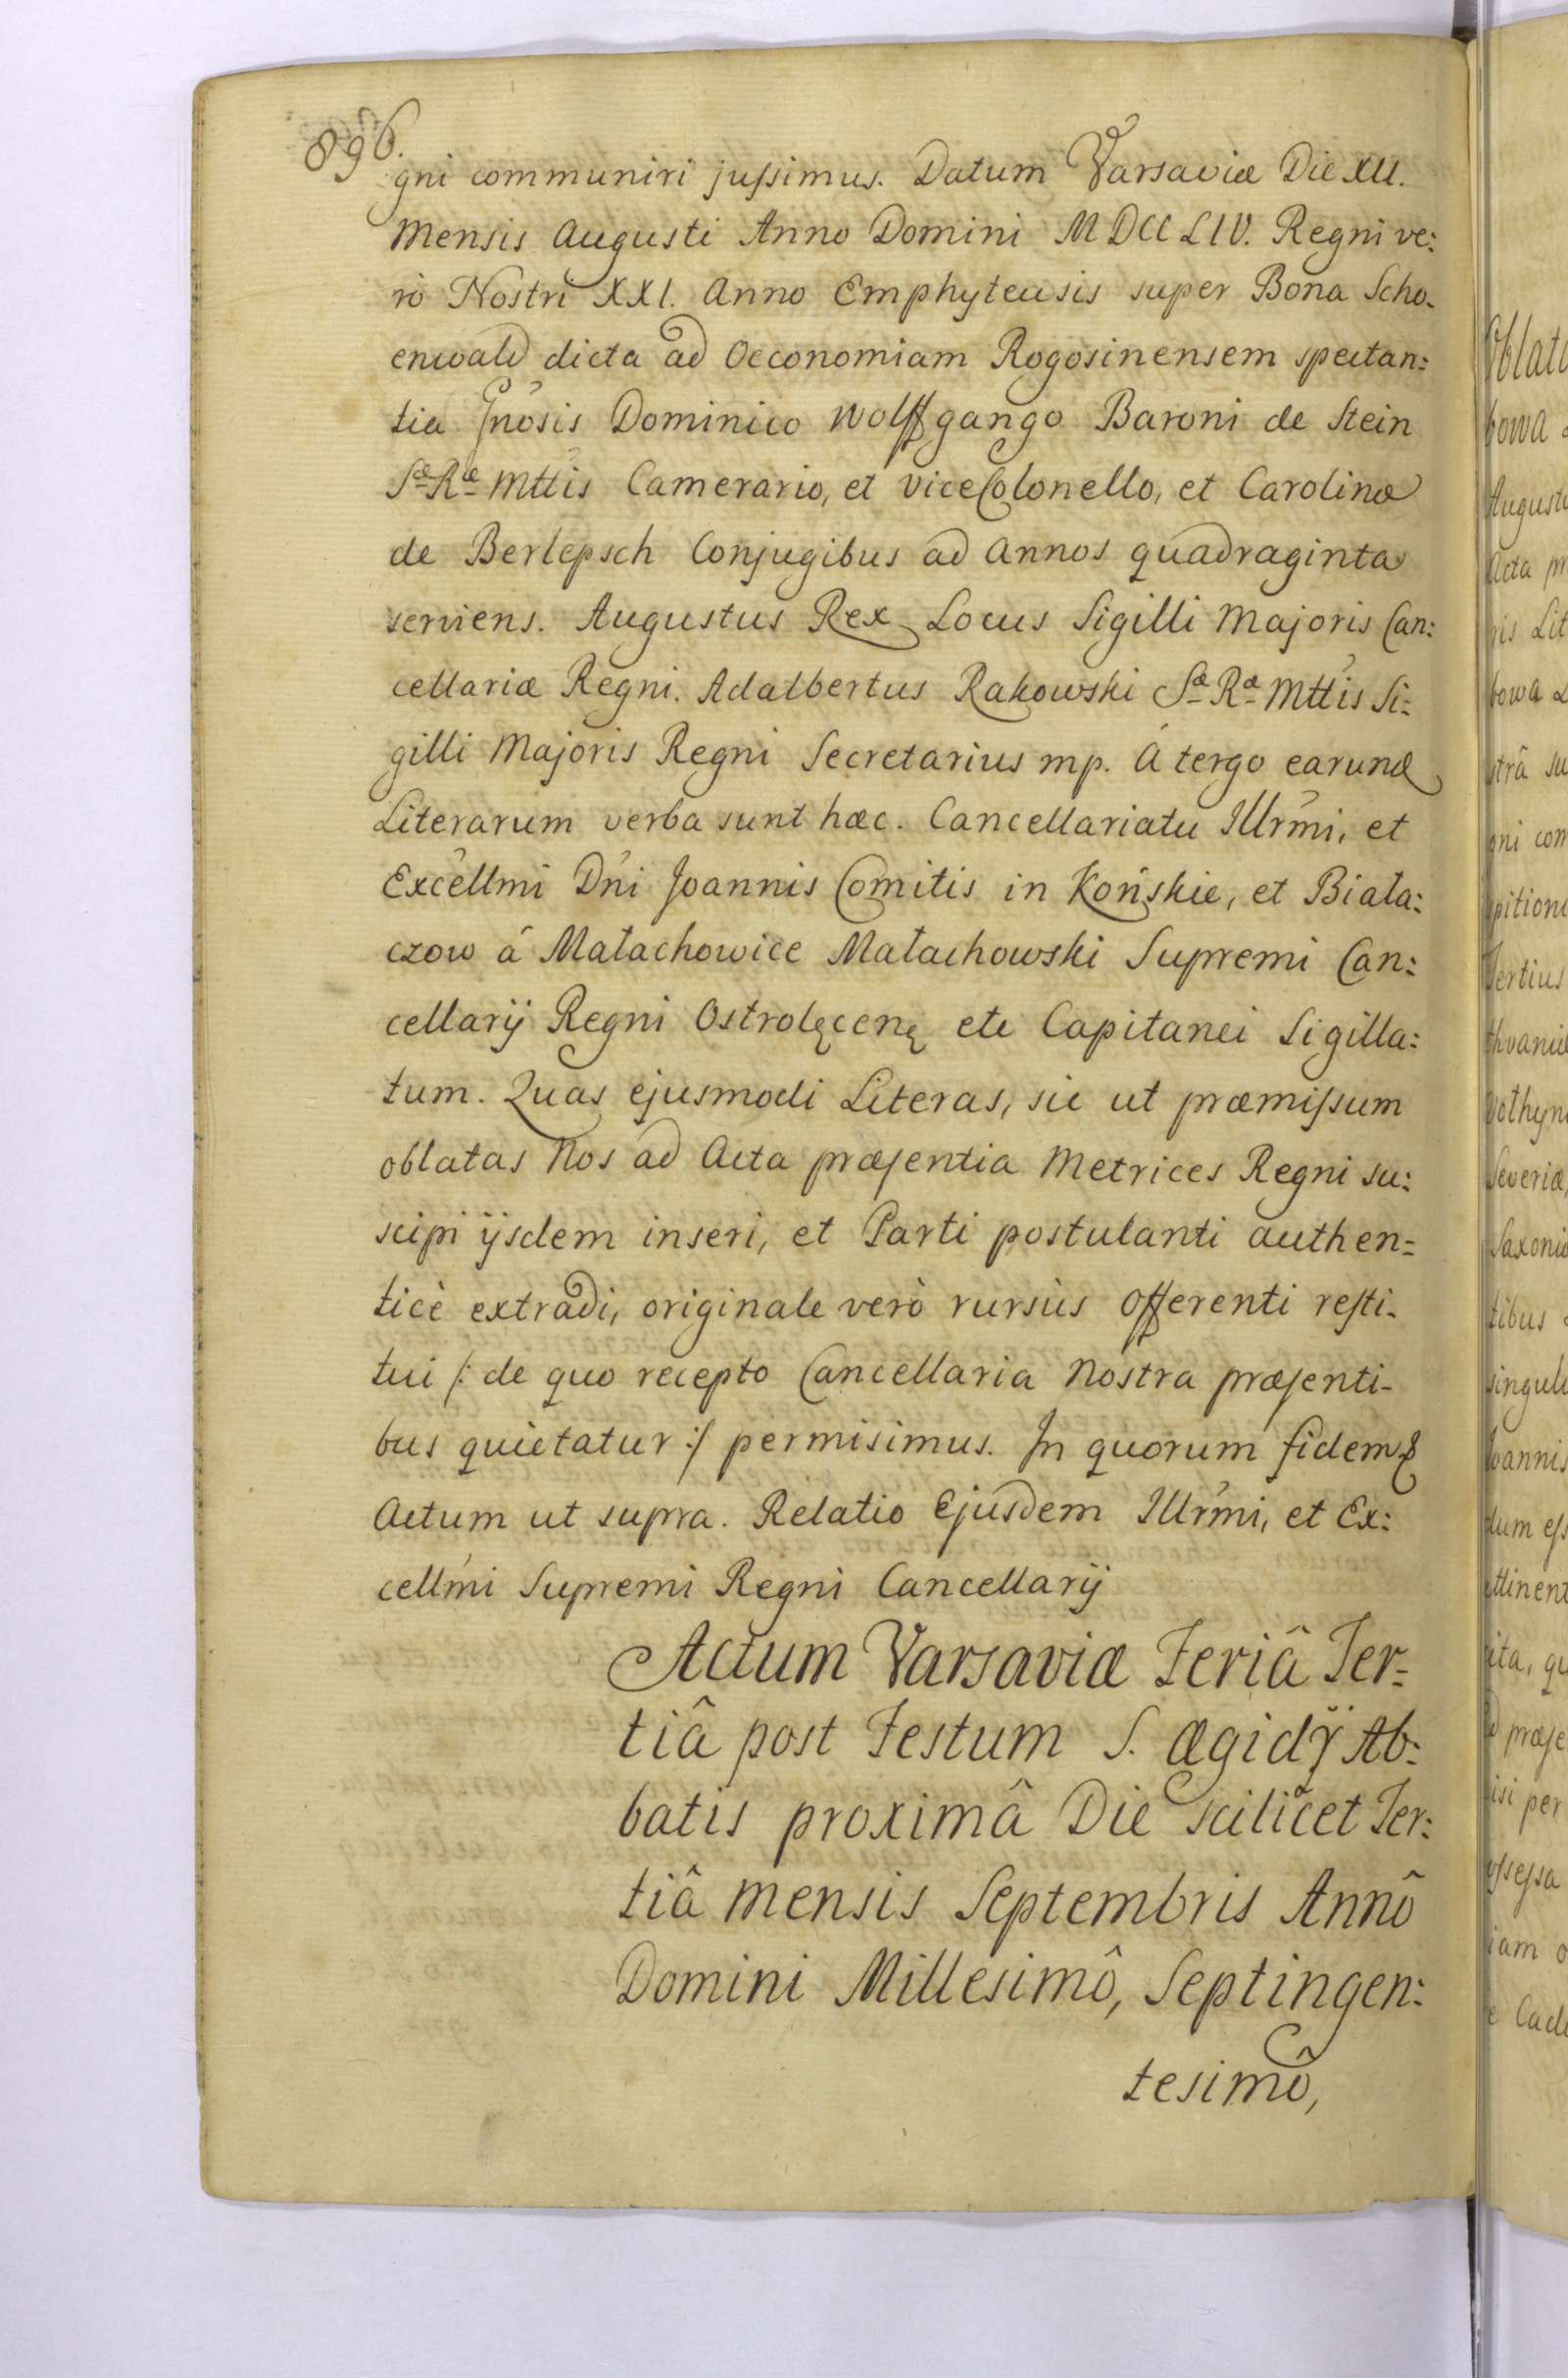 896.
gni communiri jussimus. Datum Varsaviæ Die XII.
Mensis Augusti Anno Domini MDCCLIV. Regni ve:
rò Nostri XXI. Anno Emphyteusis super Bona Scho-
enwald dicta ad Oeconomiam Rogosinensem spectan:
tia Gnosis Dominico Wolffgango Baroni de Stein
Sæ Ræ Mttis Camerario, et ViceColonello, et Carolinæ
de Berlepsch Conjugibus ad Annos quadraginta
serviens. Augustus Rex Locus Sigilli Majoris Can:
cellariæ Regni. Adalbertus Rakowski Sæ Ræ Mttis Si:
gilli Majoris Regni Secretarius mp. A tergo earund
Literarum verba sunt hæc. Cancellariatu Illrmi, et
Excellmi Dni Joannis Comitis in Końskie, et Biała:
czow á Małachowice Małachowski Supremi Can:
cellarij Regni Ostrolęcenę etc Capitanei Sigilla:
tum. Quas ejusmodi Literas, sic ut præmissum
oblatas Nos ad Acta præsentia Metrices Regni su:
scipi ijsdem inseri, et Parti postulanti authen=
ticè extradi, originale verò rursùs Offerenti resti-
tui /: de quo recepto Cancellaria Nostra præsenti-
bus quietatur :/ permisimus. In quorum fidem
Actum ut supra. Relatio Ejusdem Illrmi, et Ex:
cellmi Supremi Regni Cancellarij
Actum Varsaviæ Feriâ Ter=
tiâ post Festum S. Ægidÿ Ab:
batis proximâ Die scilicet Ter:
tiâ Mensis Septembris Annô
Domini Millesimô, Septingen:
tesimô,